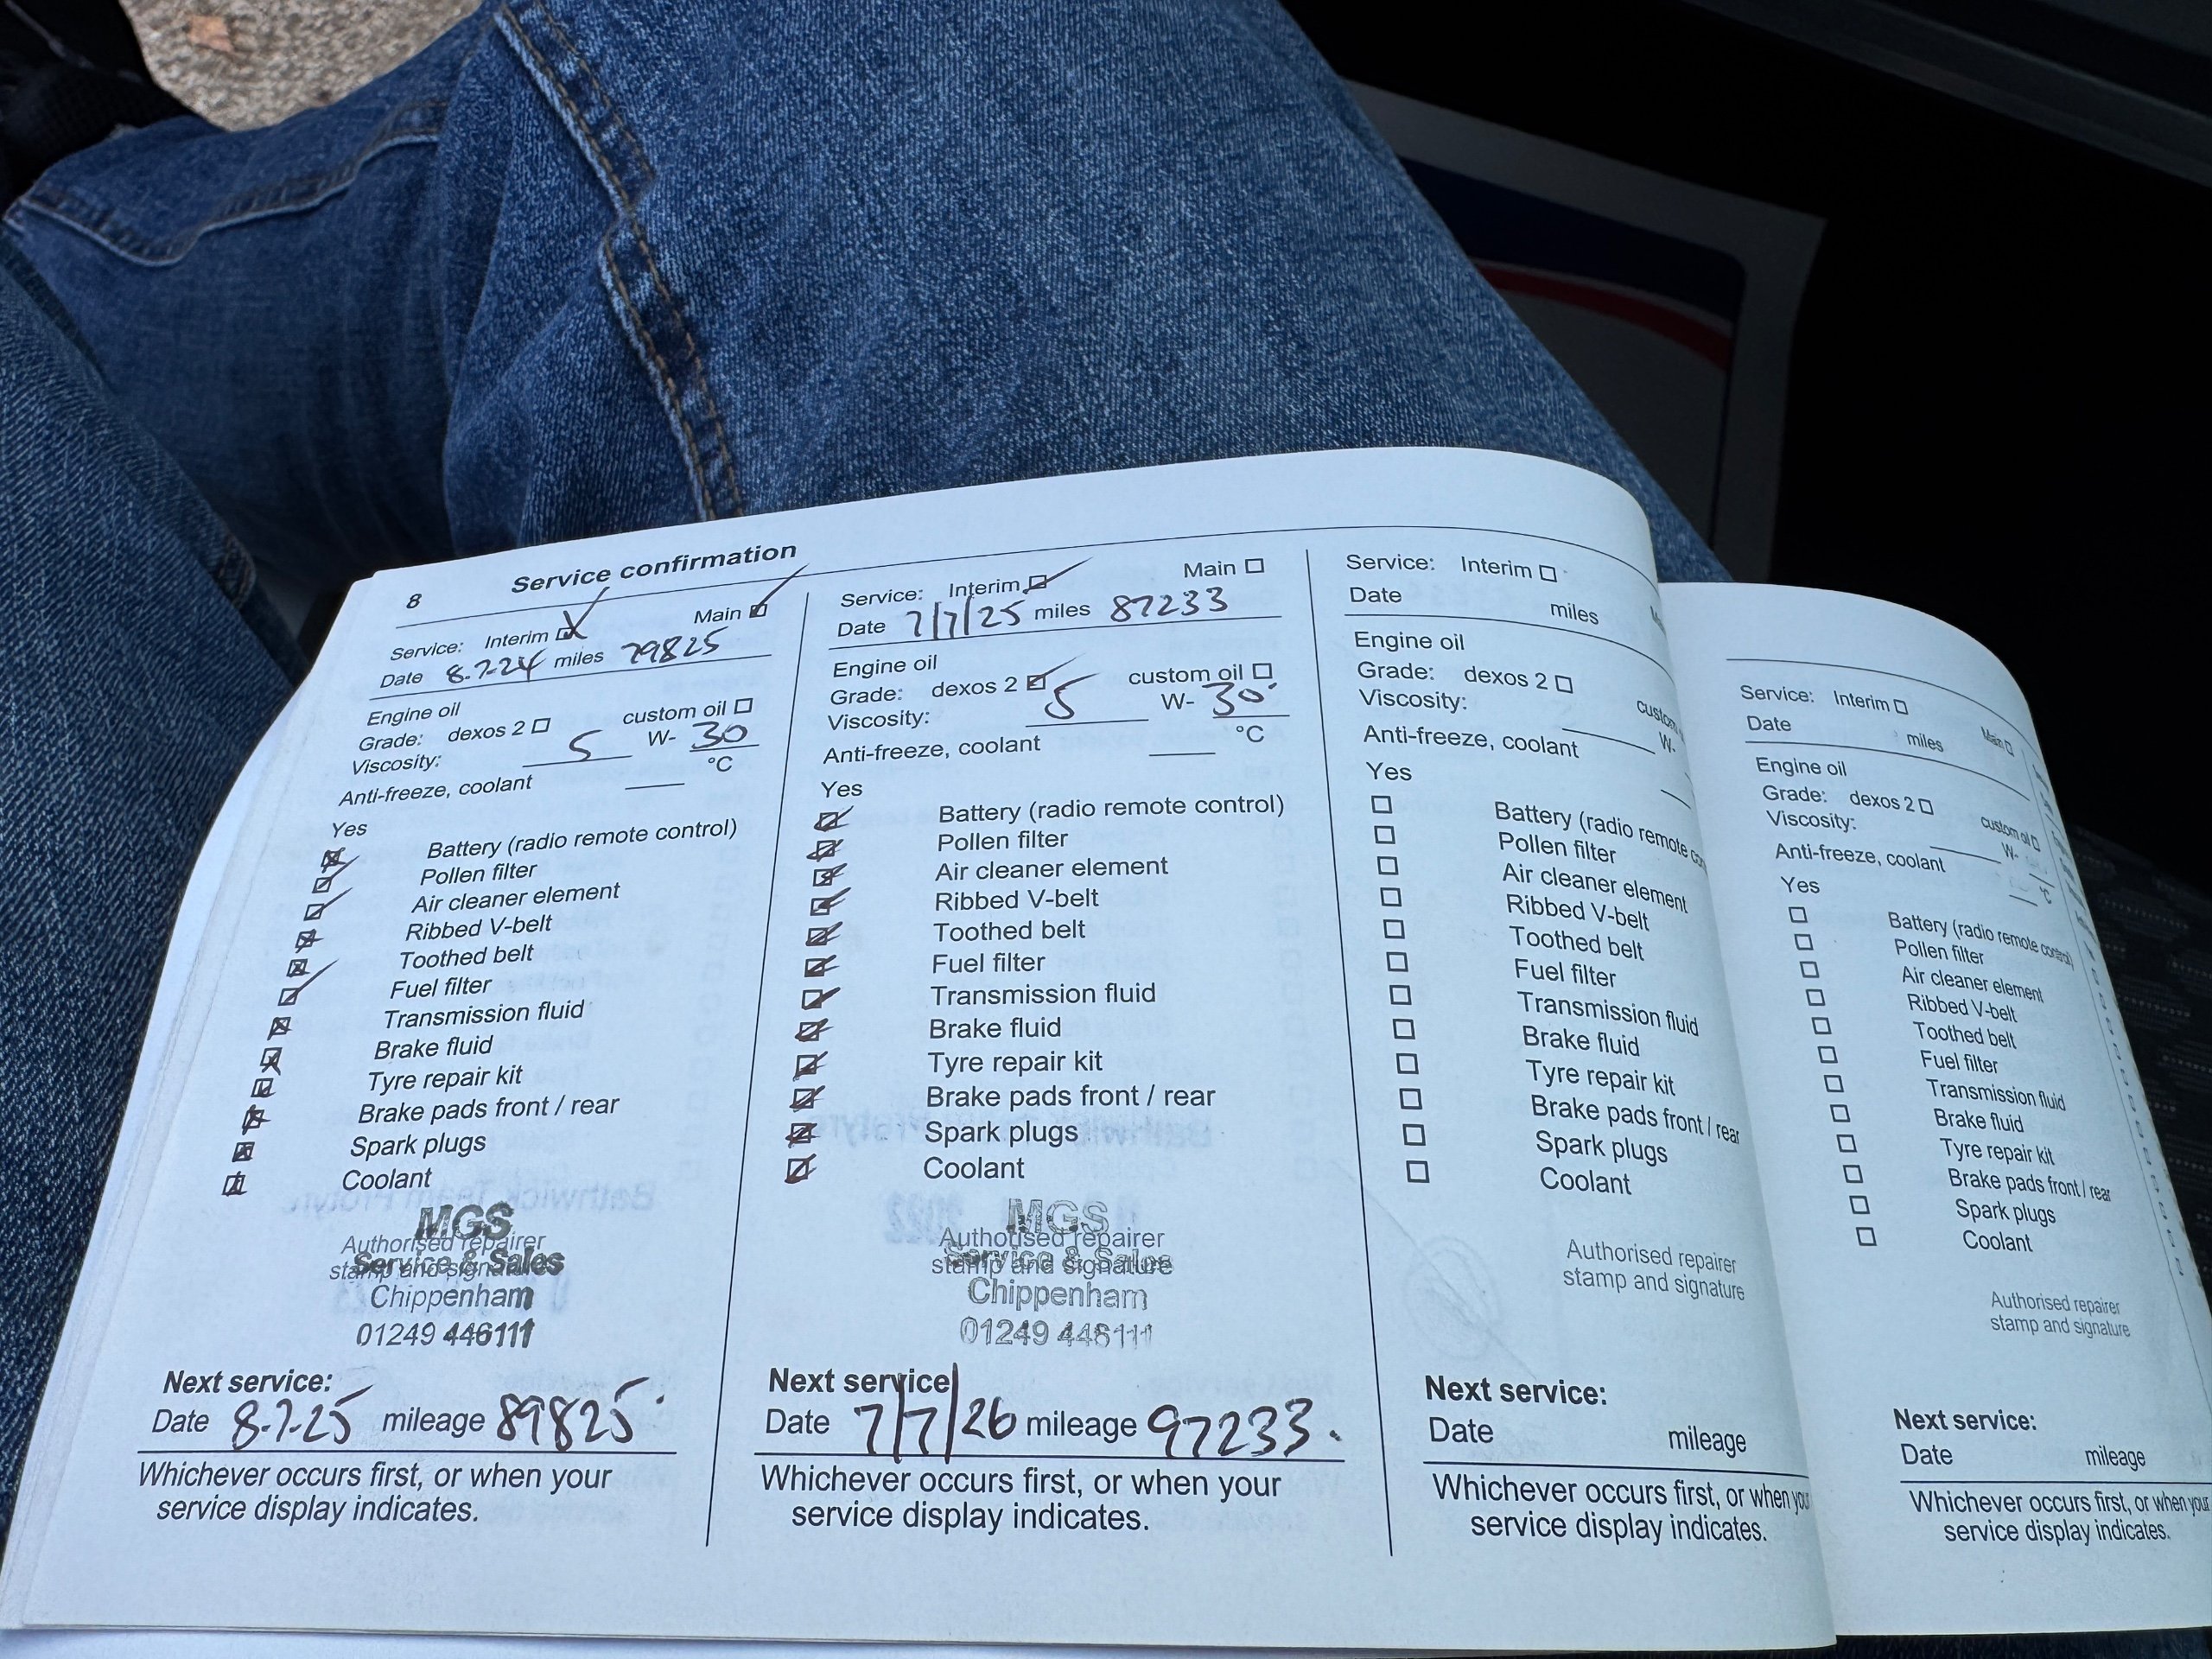 8 Service confirmation
Service: Interim Main
Date 8.7.24 miles 79825
Engine oil
Grade: dexos 2 custom oil
Viscosity: 5 W- 30
Anti-freeze, coolant °C
Yes
Battery (radio remote control)
Pollen filter
Air cleaner element
Ribbed V-belt
Toothed belt
Fuel filter
Transmission fluid
Brake fluid
Tyre repair kit
Brake pads front / rear
Spark plugs
Coolant
MGS
Authorised repairer
Service & Sales
stamp and signature
Chippenham
01249 446111
Next service:
Date 8.7.25 mileage 89825
Whichever occurs first, or when your
service display indicates.
Service: Interim Main
Date 7/7/25 miles 87233
Engine oil
Grade: dexos 2 custom oil
Viscosity: 5 W- 30
Anti-freeze, coolant °C
Yes
Battery (radio remote control)
Pollen filter
Air cleaner element
Ribbed V-belt
Toothed belt
Fuel filter
Transmission fluid
Brake fluid
Tyre repair kit
Brake pads front / rear
Spark plugs
Coolant
MGS
Authorised repairer
Service & Sales
stamp and signature
Chippenham
01249 446111
Next service
Date 7/7/26 mileage 97233.
Whichever occurs first, or when your
service display indicates.
Service: Interim
Date miles
Engine oil
Grade: dexos 2
Viscosity: W-
Anti-freeze, coolant
Yes
Battery (radio remote
Pollen filter
Air cleaner element
Ribbed V-belt
Toothed belt
Fuel filter
Transmission fluid
Brake fluid
Tyre repair kit
Brake pads front / rear
Spark plugs
Coolant
Authorised repairer
stamp and signature
Next service:
Date mileage
Whichever occurs first, or when you
service display indicates.
Service: Interim Main
Date miles
Engine oil
Grade: dexos 2 custom oil
Viscosity: W-
Anti-freeze, coolant °C
Yes
Battery (radio remote control)
Pollen filter
Air cleaner element
Ribbed V-belt
Toothed belt
Fuel filter
Transmission fluid
Brake fluid
Tyre repair kit
Brake pads front / rear
Spark plugs
Coolant
Authorised repairer
stamp and signature
Next service:
Date mileage
Whichever occurs first, or when your
service display indicates.